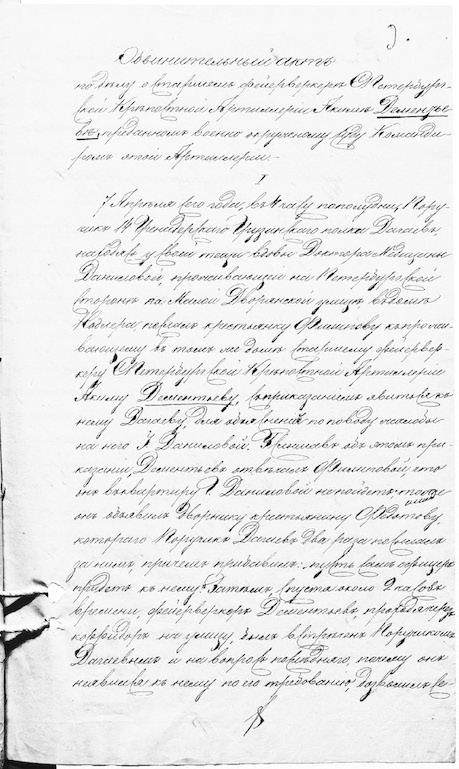 3.
Обвинительный актъ
по дѣлу о старшемъ фейерверкерѣ С.Петербург-
ской Крѣпостной Артиллерiи Акимѣ Дементье-
вѣ, преданномъ военно окружному суду Команди-
ромъ этой Артиллерiи.
I
7 Апрѣля сего года, въ 4 часу пополудни, Пору-
чикъ 14 Гренадерскаго Грузинскаго полка Дагаевъ,
находясь у своей тещи вдовы Доктора Медицины
Даниловой, проживающей на Петербургской
сторонѣ по Малой Дворянской улицѣ въ домѣ
послалъ крестьянку Филипову къ прожи-
вающему въ томъ же домѣ старшему фейервер-
керу С.Петербургской Крѣпостной Артиллерiи
Акиму Дементьеву, съ приказанiемъ явиться къ
нему Дагаеву, для объясненiй по поводу жалобы
на него Г. Даниловой. Услышавъ объ этомъ при-
казанiи, Дементьевъ отвѣчалъ Филиповой, что
онъ въ квартиру Г. Даниловой не пойдетъ, тоже самое
онъ объявилъ дворнику крестьянину Федотову
котораго Поручикъ Дагаевъ два раза посылалъ
за нимъ, причемъ прибавилъ: пусть самъ офицеръ
придетъ къ нему. Затѣмъ, спустя около 2 часовъ
времени, фейерверкеръ Дементьевъ проходя чрезъ
корридоръ на улицу, былъ встрѣченъ Поручикомъ
Дагаевымъ и на вопросъ послѣдняго, почему онъ
не явился къ нему по его требованiю, дозволилъ се-